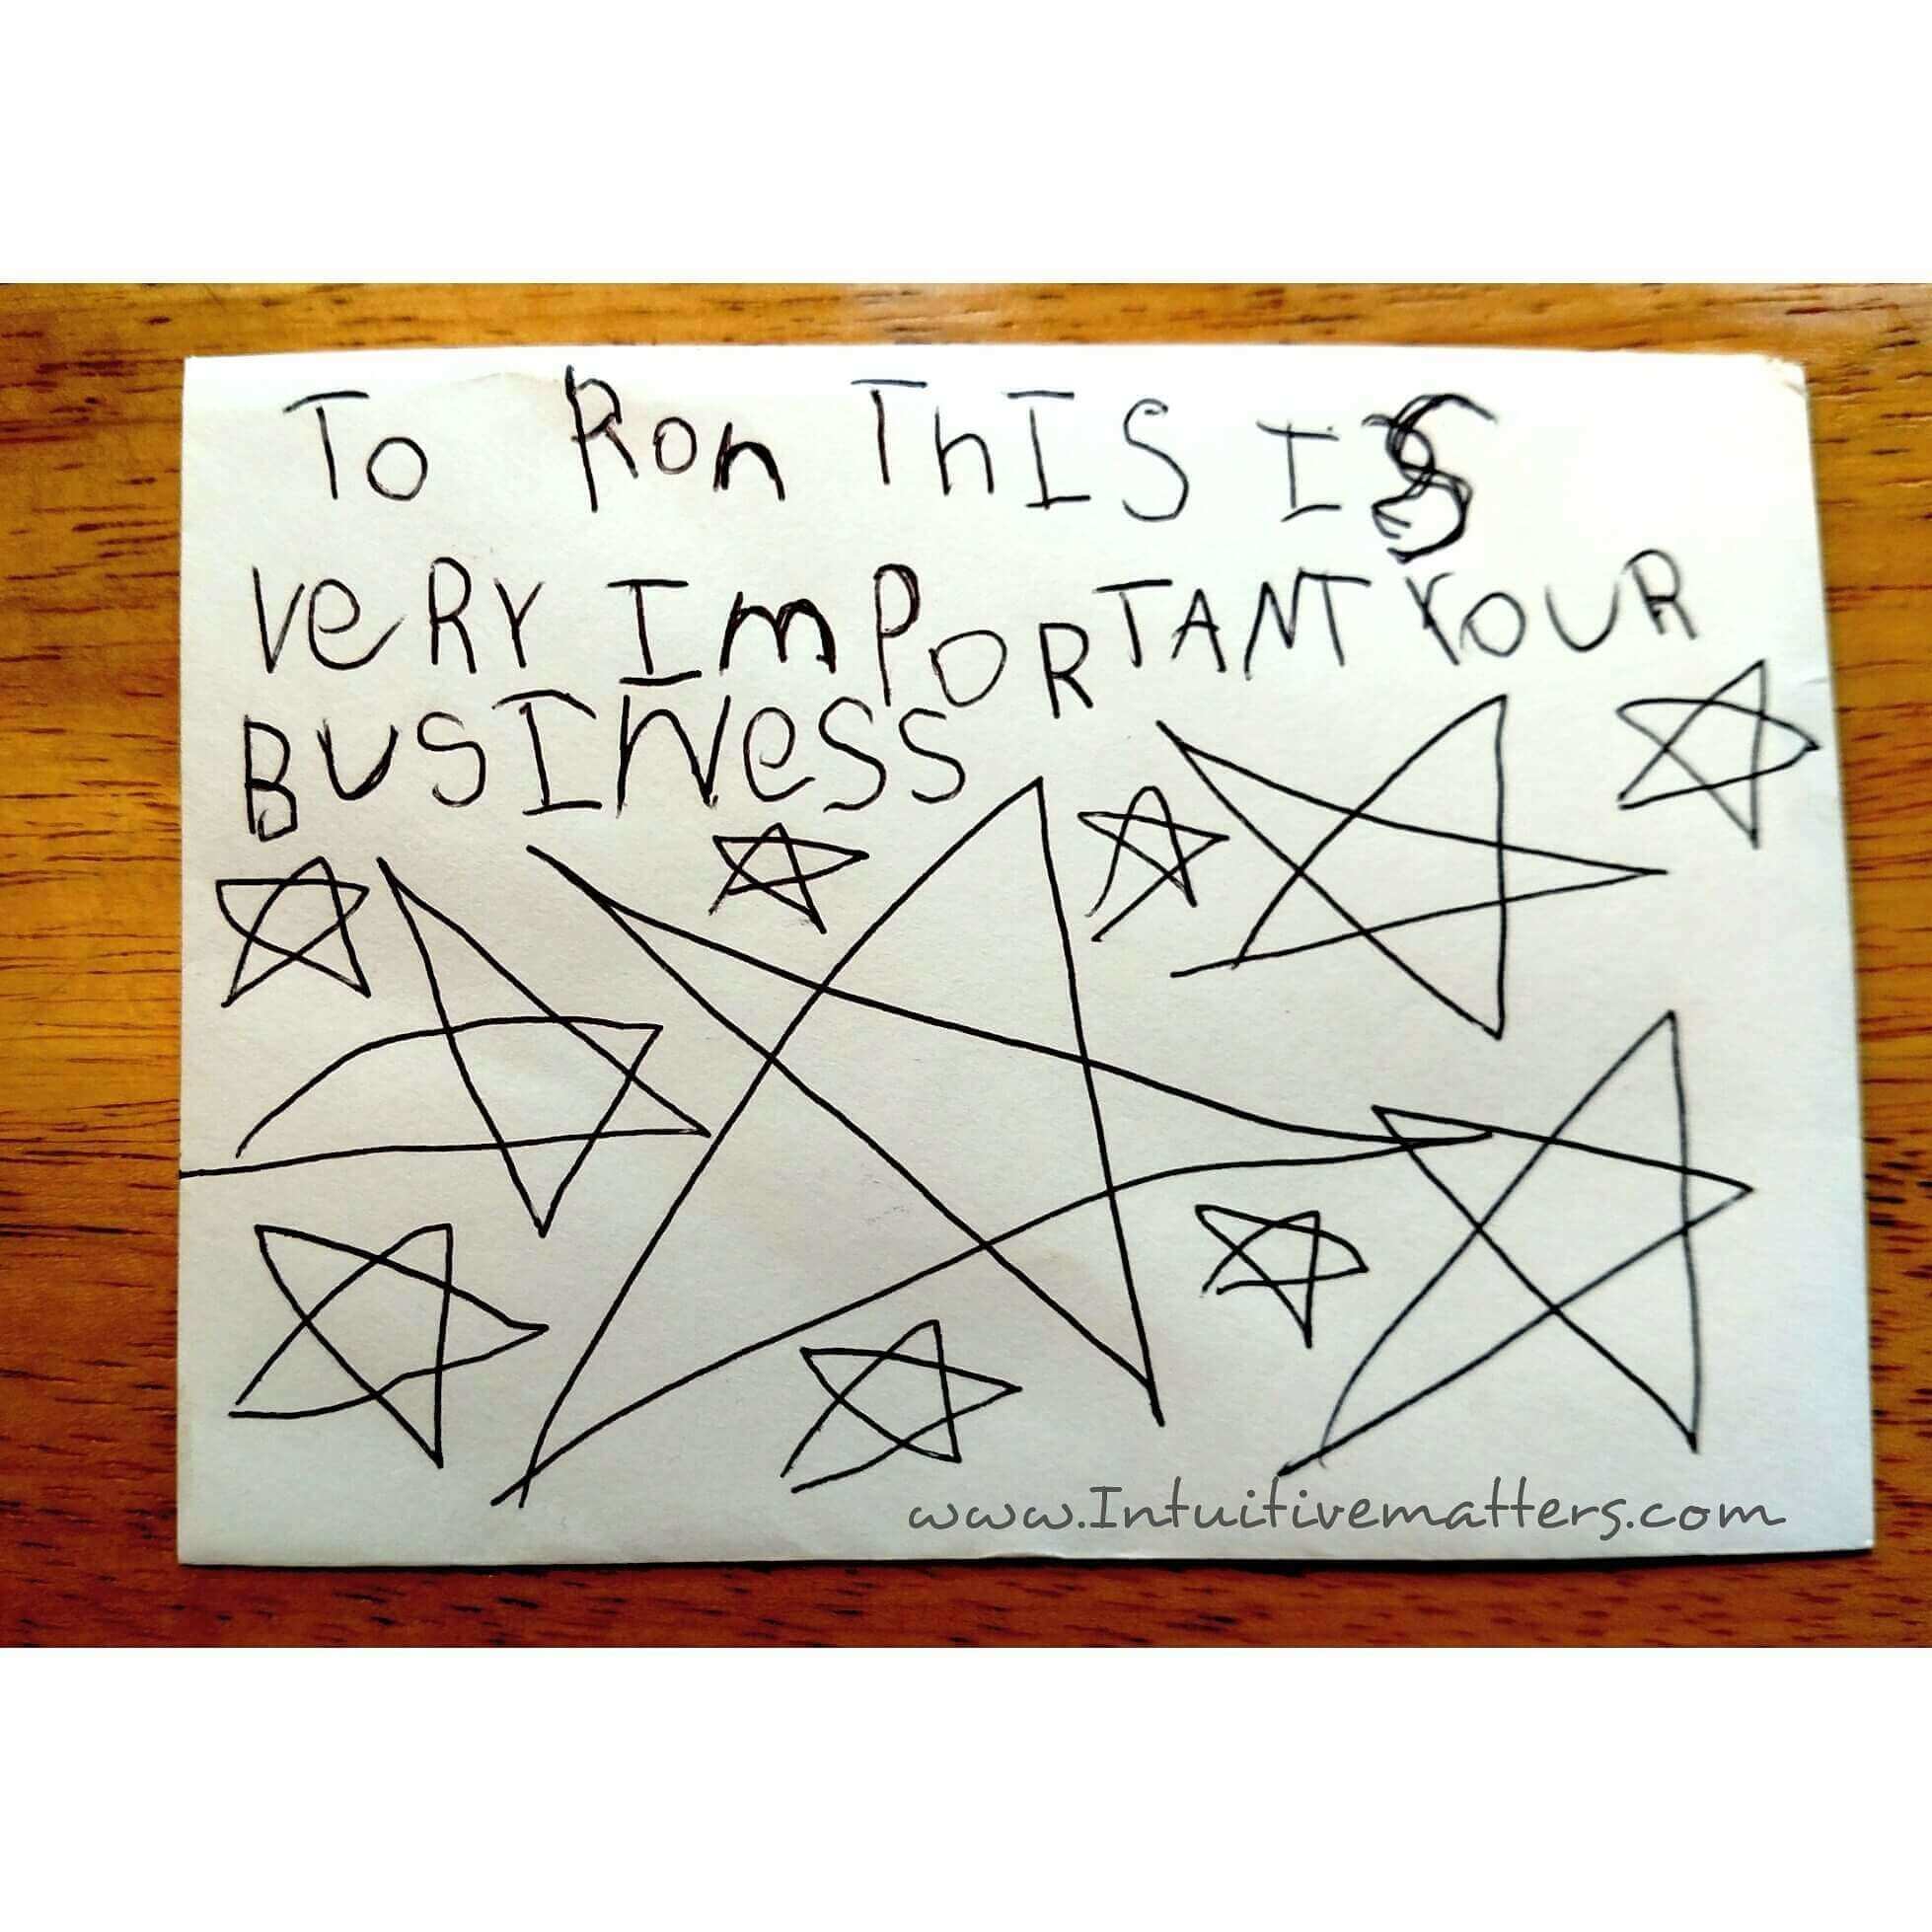 To Ron ThIS IS
VeRY ImPORTANT YOUR
BUSINess
www.Intuitivematters.com